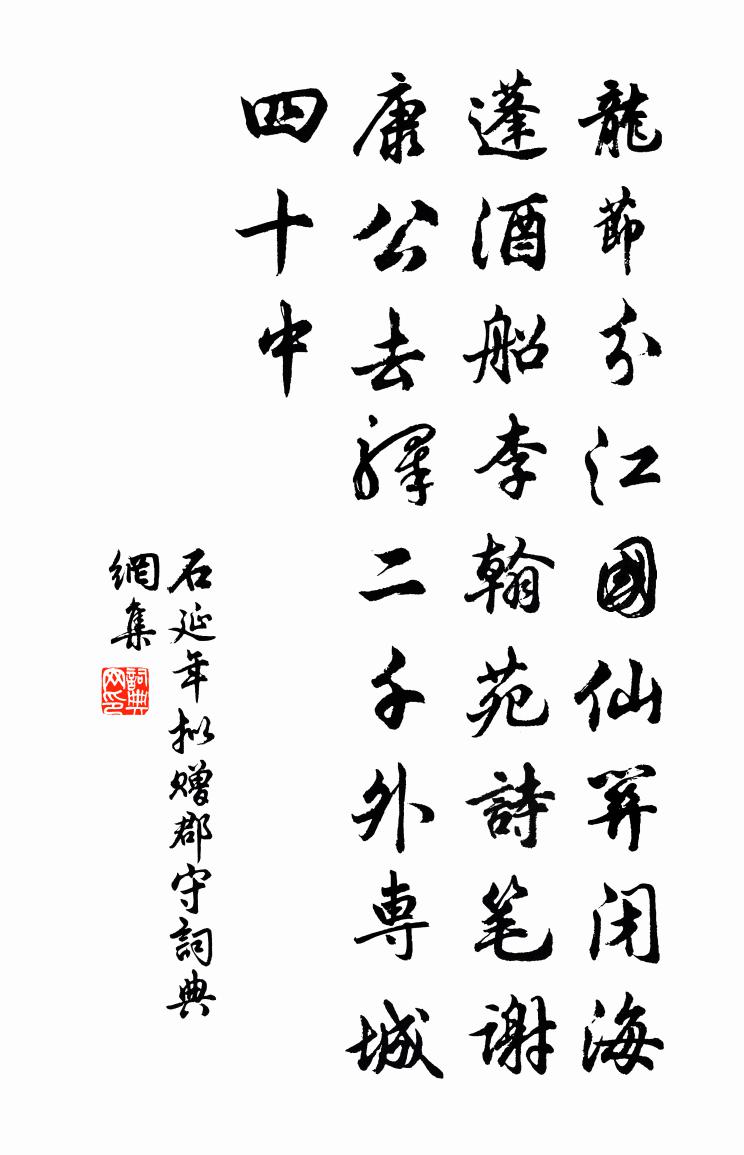 龍節分江國仙閉海
蓬酒船李翰苑詩笔謝
康公去驛二千外専城
四十中
石延年拟赠郡守詞典
網集
詞典
网印